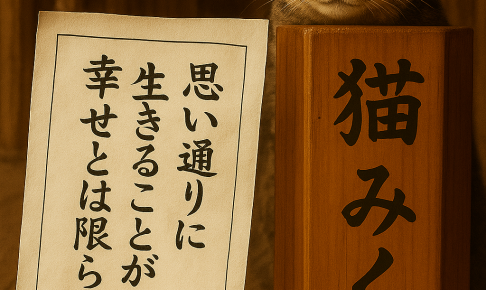 思い通りに
生きることが
幸せとは限ら
猫みく